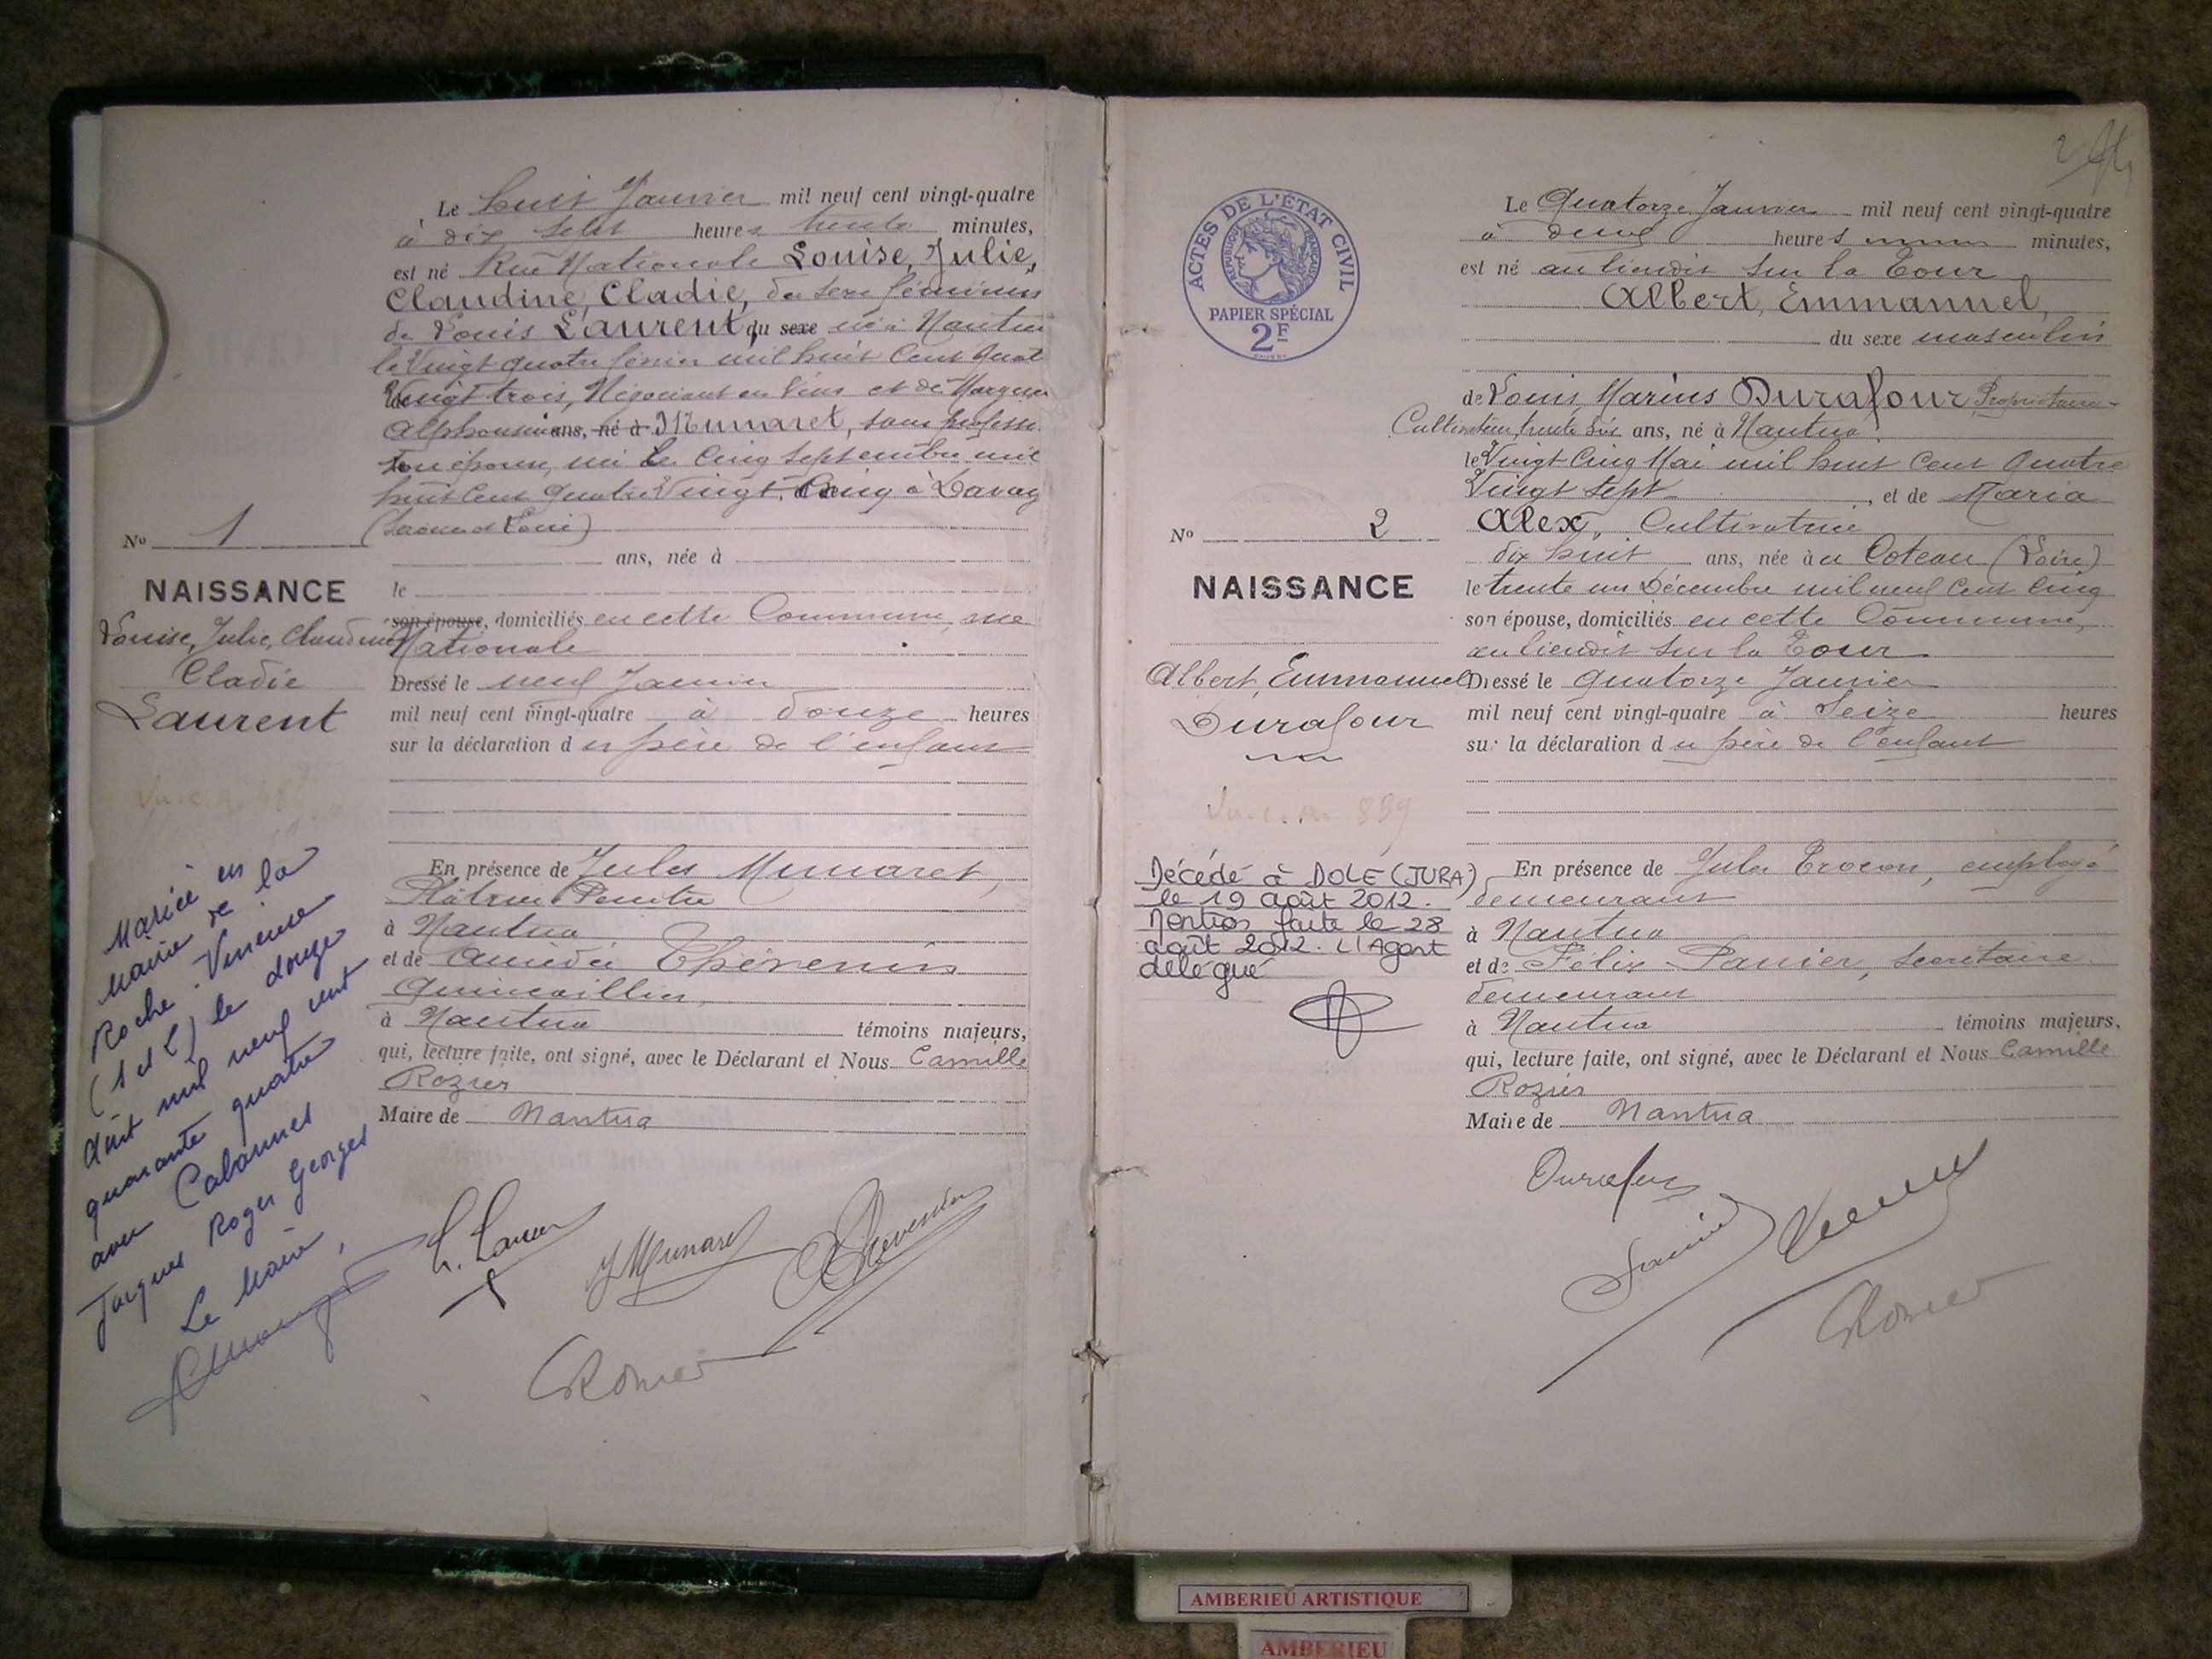 Le huit Janvier mil neuf cent vingt-quatre
à dix sept heures trente minutes,
est né Rue Nationale Louise, Julie,
Claudine, Cladie, du sexe féminin
de Louis Laurent, du sexe né à Nantua
le Vingt quatre février mil huit Cent Quat
Vingt trois, Négociant en Vins et de
Alphonsine ans, né à Munaret, sans profess
son épouse, née le Cinq Septembre mil
huit Cent Quatre Vingt Cinq à
(Saone et Loire)
ans, née à
No 1
NAISSANCE
Louise, Julie, Claudine
Cladie
Laurent
le
son épouse, domiciliés en cette Commune, rue
Nationale
Dressé le neuf Janvier
mil neuf cent vingt-quatre à douze heures
sur la déclaration du père de l'enfant
En présence de Jules Munaret,
Plâtrier Peintre
à Nantua
et de Amédée Thévenin
Quincaillier,
à Nantua témoins majeurs,
qui, lecture faite, ont signé, avec le Déclarant et Nous Camille
Rozier
Maire de Nantua
Mariée en
Mairie de la
Roche-Vineuse
(S et L) le douze
Août mil neuf cent
quarante quatre
avec Calonnes
Jacques Roger Georges
Le Maire,
J Munaret
ACTES DE L'ÉTAT CIVIL
RÉPUBLIQUE FRANÇAISE
PAPIER SPÉCIAL
2F
2
Le Quatorze Janvier mil neuf cent vingt-quatre
à deux heures minutes,
est né au lieudit sur la Cour
Albert, Emmanuel,
du sexe masculin
de Louis, Marius Durafour Propriétaire-
Cultivateur, trente six ans, né à Nantua.
le Vingt Cinq Mai mil huit Cent Quatre
Vingt Sept, et de Maria
Alex, Cultivatrice
dix huit ans, née au Coteau (Loire)
le trente un Décembre mil neuf Cent Cinq
son épouse, domiciliés en cette Commune,
au lieudit sur la Cour
No 2
NAISSANCE
Albert, Emmanuel
Durafour
Dressé le Quatorze Janvier
mil neuf cent vingt-quatre à Seize heures
sur la déclaration du père de l'enfant
899
Décédé à DOLE (JURA)
le 19 août 2012.
Mention faite le 28
août 2012. L'Agent
délégué
En présence de Jules, employé
demeurant
à Nantua
et de Félix Panier, Secrétaire
demeurant
à Nantua témoins majeurs,
qui, lecture faite, ont signé, avec le Déclarant et Nous Camille
Rozier
Maire de Nantua
Durafour
AMBERIEU ARTISTIQUE
AMBERIEU